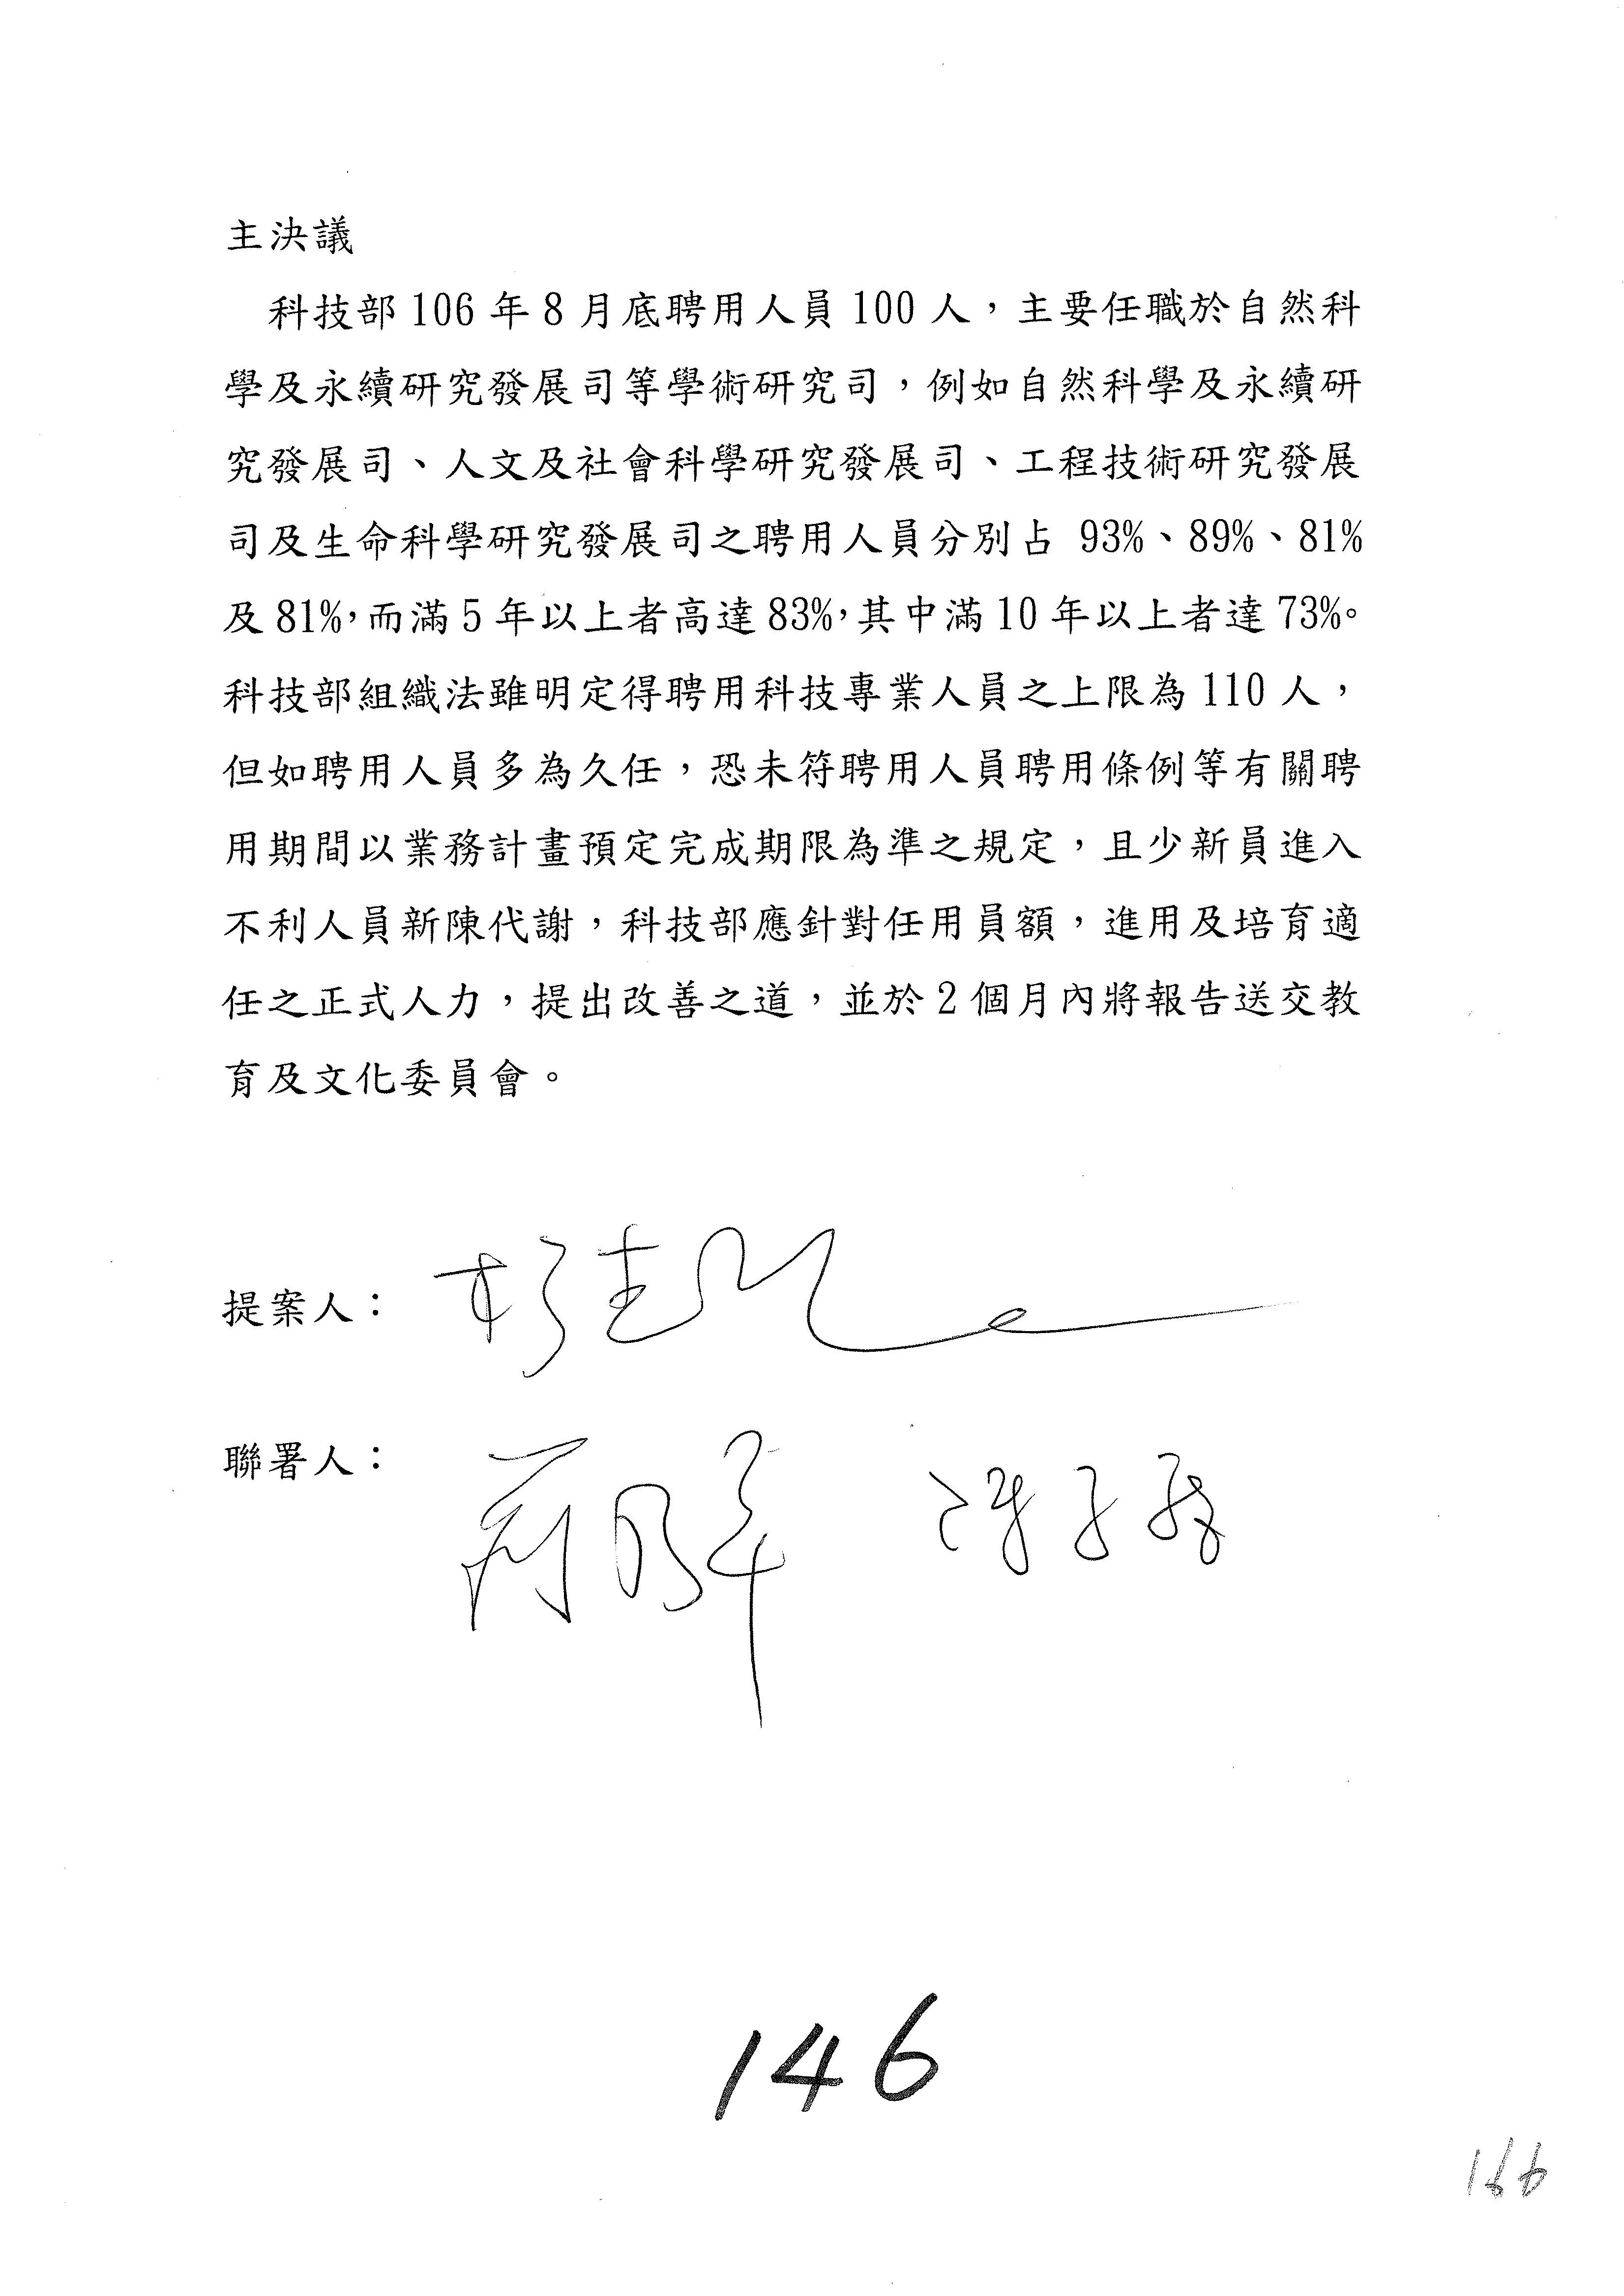 主決議
科技部 106 年 8 月底聘用人員 100 人，主要任職於自然科
學及永續研究發展司等學術研究司，例如自然科學及永續研
究發展司、人文及社會科學研究發展司、工程技術研究發展
司及生命科學研究發展司之聘用人員分別占 93%、89%、81%
及 81%，而滿 5 年以上者高達 83%，其中滿 10 年以上者達 73%。
科技部組織法雖明定得聘用科技專業人員之上限為 110 人，
但如聘用人員多為久任，恐未符聘用人員聘用條例等有關聘
用期間以業務計畫預定完成期限為準之規定，且少新員進入
不利人員新陳代謝，科技部應針對任用員額，進用及培育適
任之正式人力，提出改善之道，並於 2 個月內將報告送交教
育及文化委員會。
提案人：
聯署人：
146